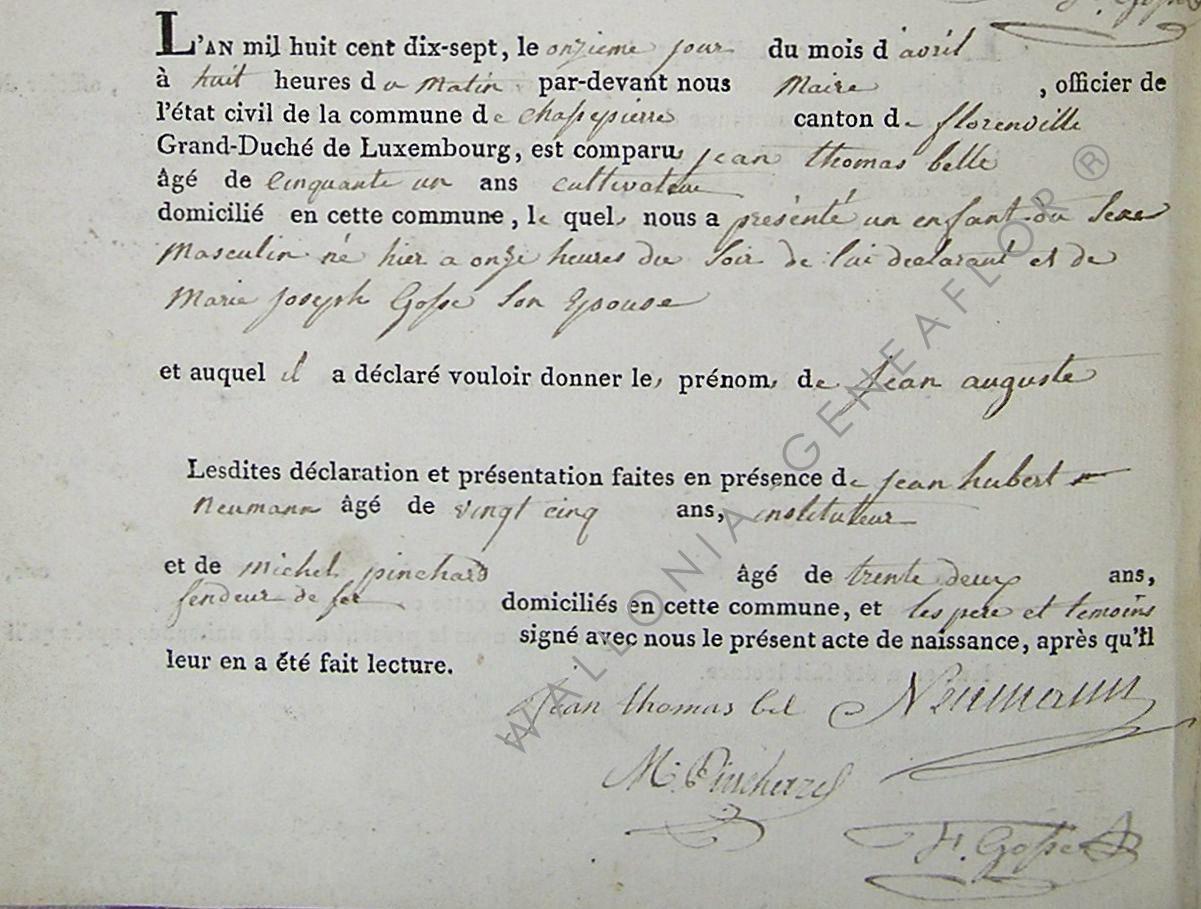 L'AN mil huit cent dix-sept, le onzieme jour du mois d'avril
à huit heures du matin par-devant nous Maire , officier de
l'état civil de la commune de Chassepierre canton de florenville
Grand-Duché de Luxembourg, est comparu jean thomas belle
âgé de Cinquante un ans cultivateur
domicilié en cette commune, le quel nous a présenté un enfant du Sexe
Masculin né hier a onze heures du Soir de lui declarant et de
Marie joseph Gosse Son Epouse
et auquel il a déclaré vouloir donner le prénom de jean auguste
Lesdites déclaration et présentation faites en présence de jean hubert
Neumann âgé de vingt cinq ans, instituteur
et de Michel pinchard âgé de trente deux ans,
fendeur de fer domiciliés en cette commune, et les pere et temoins
signé avec nous le présent acte de naissance, après qu'il
leur en a été fait lecture.
Jean thomas bel Neumann
M. Pinchard
Gosse
WALLONIA GENEAFLOR ®